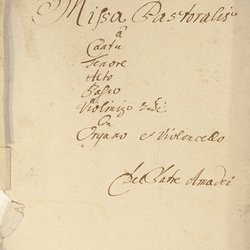 Missa Pastoralis
a
Cantu
Tenore
Alto
Basso
Violini 2
Con
Organo e Violoncello
Del Patre Amadei